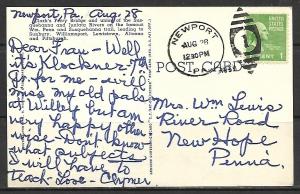 Newport, Pa. Aug 28
Clark's Ferry Bridge and union of the Susquehanna and Juniata Rivers on the famous Wm. Penn and Susquehanna trail, leading to Williamsport, Lewistown, Altoona and Pittsburgh.
Dear Fray - Well
its Klockner
for me - will
miss my old pals
at Willey but am
very happy other
wise. dont know
what subjects
I will have to
teach. Love -
NEWPORT
AUG 28
12:30 PM
PA.
POST CARD
1 CENT 1
Mrs. Wm Lewis
River Road
New Hope
Penna.